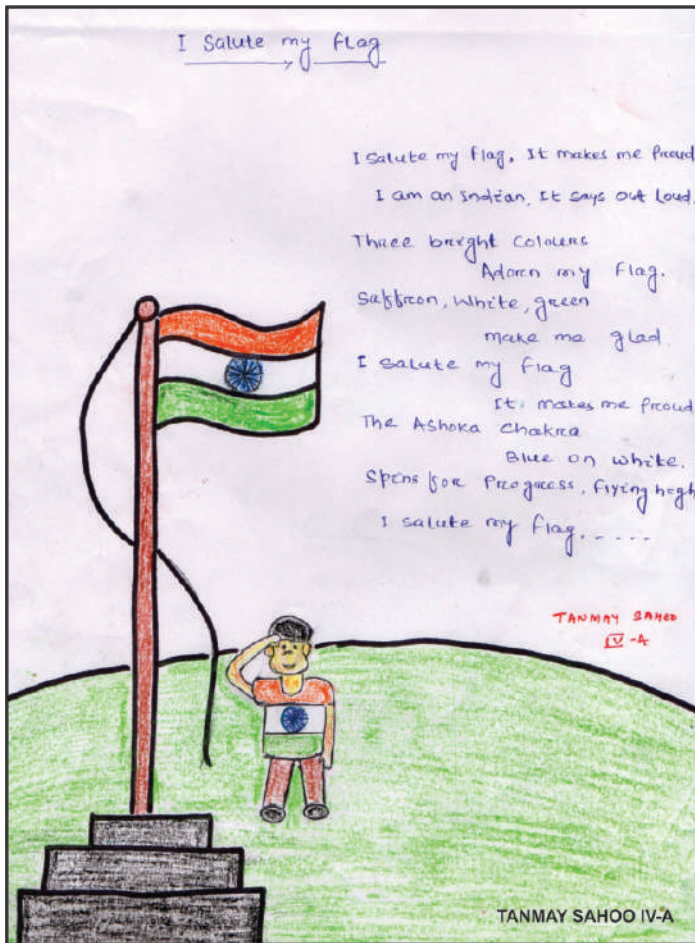 I Salute my flag
I salute my flag, It makes me Proud
I am an Indian, It says out Loud.
Three bright Colours
Adorn my Flag.
Saffron, White, green
make me glad.
I salute my flag
It makes me Proud
The Ashoka Chakra
Blue on white.
Spins for Progress, flying high
I salute my flag.....
TANMAY SAHOO
IV-A
TANMAY SAHOO IV-A